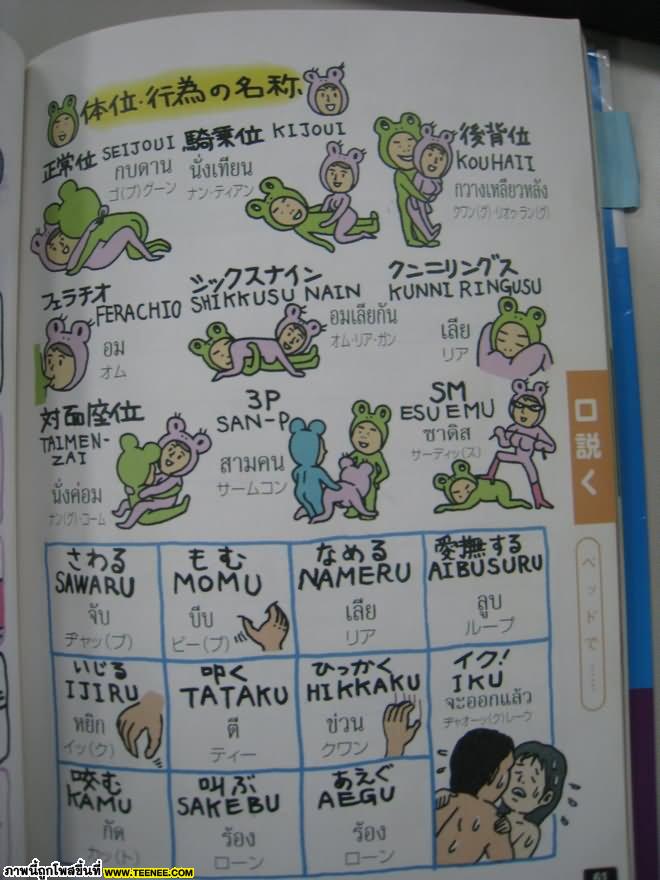 体位・行為の名称
正常位 SEIJOUI
กบดาน
ゴ(プ)グーン
騎乗位 KIJOUI
นั่งเทียน
ナン・ティアン
後背位
KOUHAII
กวางเหลียวหลัง
クワン(グ)・リオゥ・ラン(グ)
フェラチオ
FERACHIO
อม
オム
シックスナイン
SHIKKUSU NAIN
อมเลียกัน
オム・リア・ガン
クンニリングス
KUNNI RINGUSU
เลีย
リア
対面座位
TAIMEN-
ZAI
นั่งค่อม
ナン(グ)・コーム
3P
SAN-P
สามคน
サームコン
SM
ESU EMU
ซาดิส
サーディッ(ス)
さわる
SAWARU
จับ
ヂャッ(プ)
もむ
MOMU
บีบ
ビー(プ)
なめる
NAMERU
เลีย
リア
愛撫する
AIBUSURU
ลูบ
ループ
いじる
IJIRU
หยิก
イッ(ク)
叩く
TATAKU
ตี
ティー
ひっかく
HIKKAKU
ข่วน
クワン
イク!
IKU
จะออกแล้ว
ヂャオーッ(ク)レーウ
咬む
KAMU
กัด
ガッ(ト)
叫ぶ
SAKEBU
ร้อง
ローン
あえぐ
AEGU
ร้อง
ローン
口説く
ベッドで……
61
ภาพนี้ถูกโพสขึ้นที่ WWW.TEENEE.COM